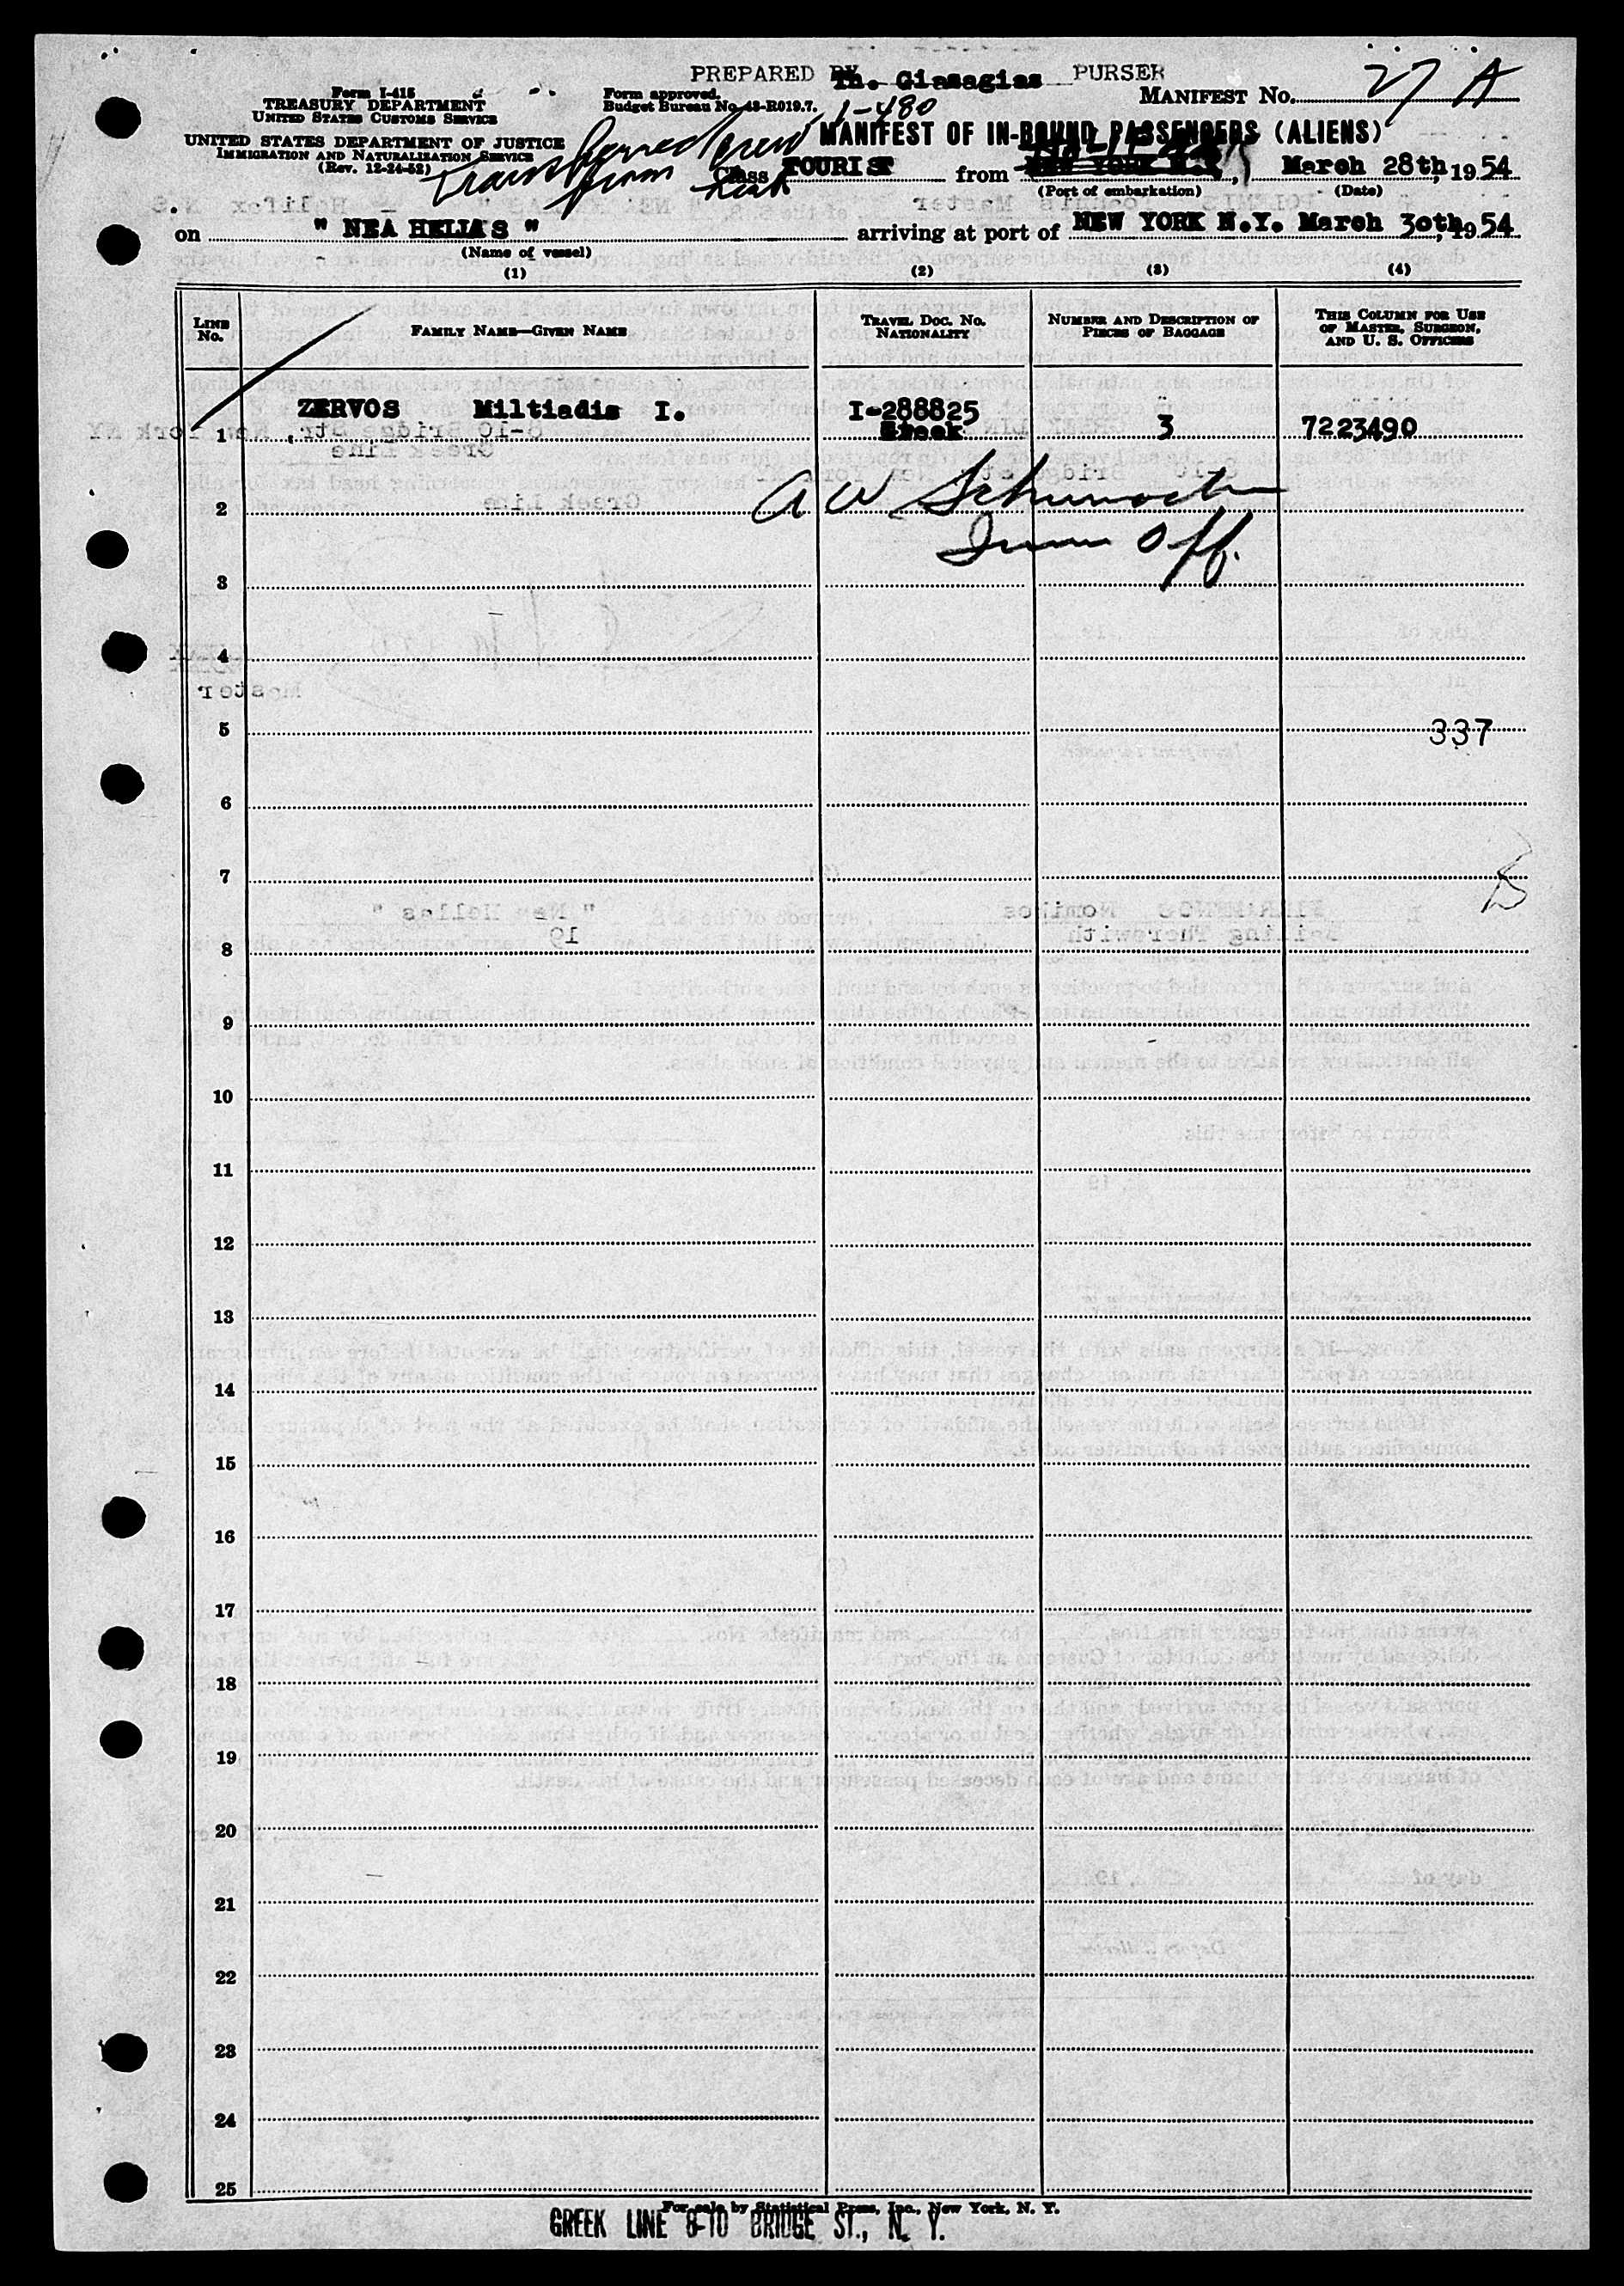 PREPARED BY Th. Giasagias PURSER
Form I-415
TREASURY DEPARTMENT
UNITED STATES CUSTOMS SERVICE
UNITED STATES DEPARTMENT OF JUSTICE
IMMIGRATION AND NATURALIZATION SERVICE
(Rev. 12-24-52)
Form approved.
Budget Bureau No. 43-R019.7.
1-480
MANIFEST NO. 27 A
MANIFEST OF IN-BOUND PASSENGERS (ALIENS)
Transferred from crew
Class TOURIST from NEW YORK N.Y., March 28th, 1954
(Port of embarkation) (Date)
on " NEA HELLAS " arriving at port of NEW YORK N.Y. March 30th, 1954
(Name of vessel)
(1) (2) (3) (4)
LINE NO.
FAMILY NAME—GIVEN NAME
TRAVEL DOC. NO. NATIONALITY
NUMBER AND DESCRIPTION OF PIECES OF BAGGAGE
THIS COLUMN FOR USE OF MASTER, SURGEON, AND U. S. OFFICERS
1 ZERVOS Miltiadis I. I-288825 Greek 3 7223490
2 A W Schumacher
Imm Off.
3
4
5 337
6
7
8
9
10
11
12
13
14
15
16
17
18
19
20
21
22
23
24
25
For sale by Statistical Press, Inc., New York, N. Y.
GREEK LINE 8-10 BRIDGE ST., N. Y.